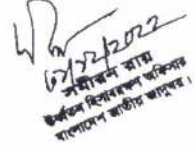 সমীরন রায়
ঊর্ধ্বতন হিসাবরক্ষণ অফিসার
বাংলাদেশ জাতীয় জাদুঘর।